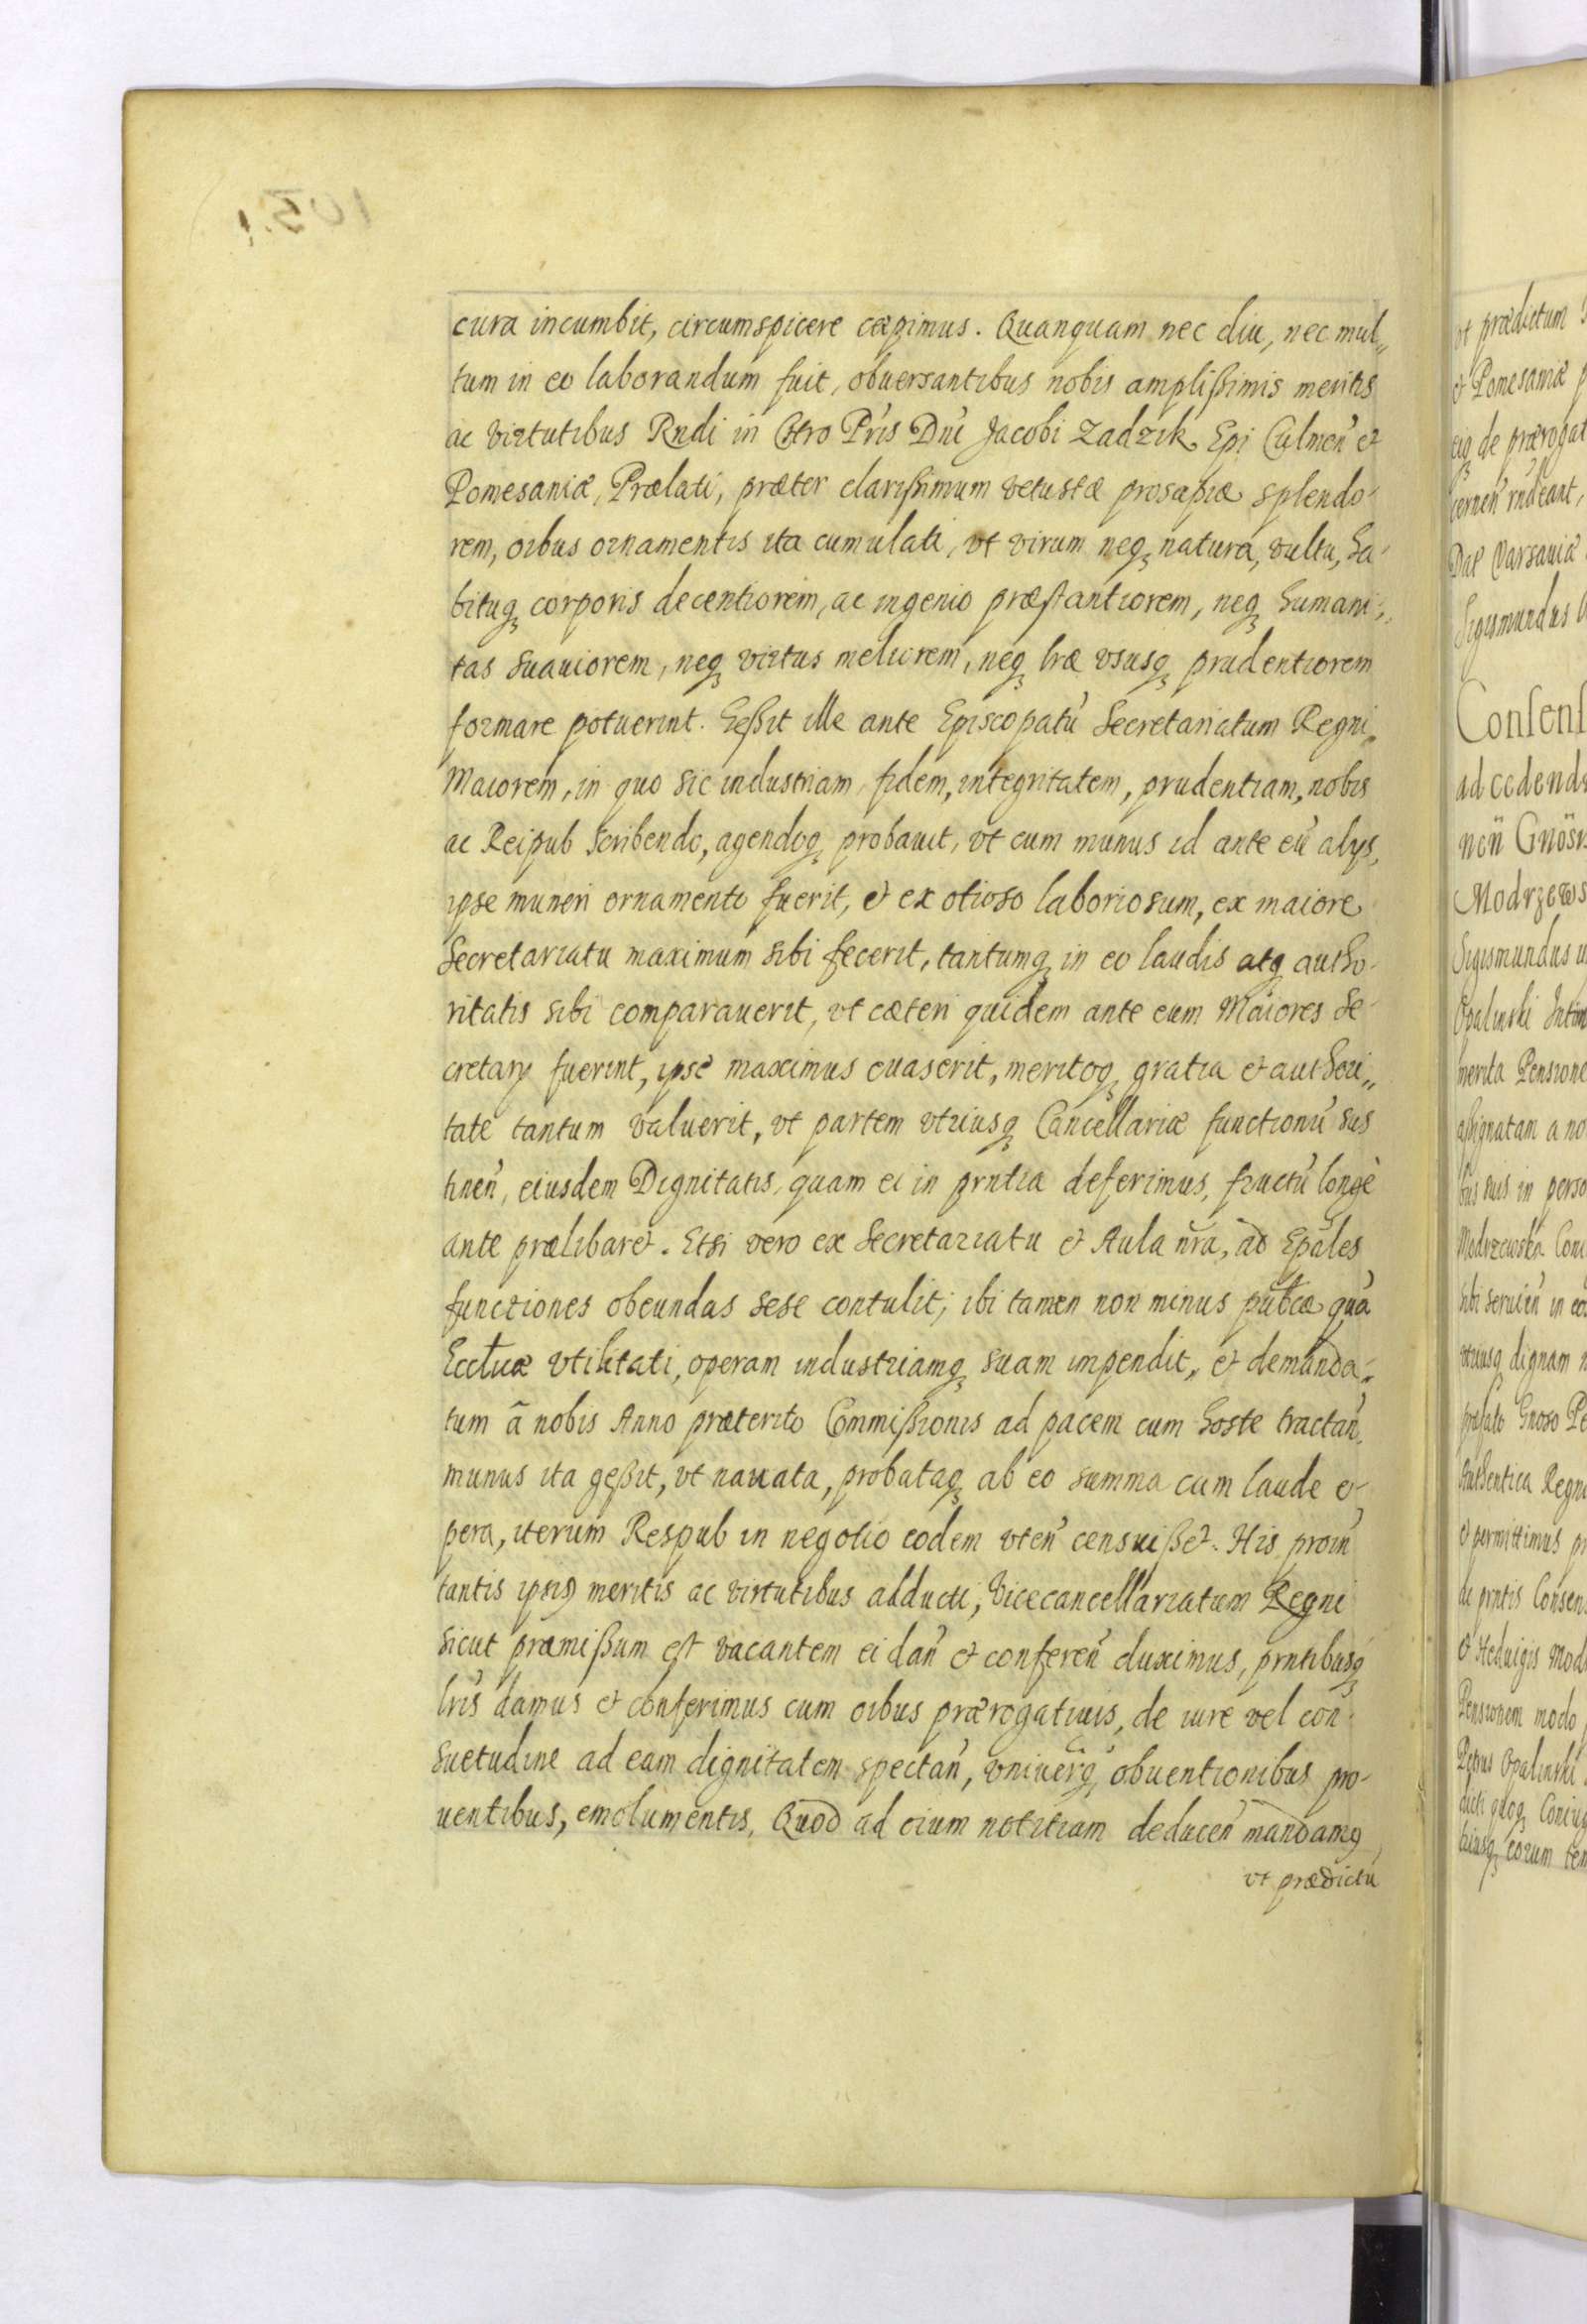 cura incumbit, circumspicere cœpimus. Quanquam nec diu, nec mul„
tum in eo laborandum fuit, obuersantibus nobis amplißimis meritis
ac virtutibus Rndi in Chro Pris Dni Jacobi Zadzik Epi Culmen et
Pomesaniæ, Prælati, præter clarißimum vetustæ prosapiæ splendo-
rem, oibus ornamentis ita cumulati, vt virum neq natura, vultu, ha-
bituq corporis decentiorem, ac ingenio præstantiorem, neq humani„
tas suauiorem, neq virtus meliorem, neq lræ vsusq prudentiorem
formare potuerint. Geßit ille ante Episcopatũ Secretariatum Regni
Maiorem, in quo sic industriam, fidem, integritatem, prudentiam, nobis
ac Reipub scribendo, agendoq probauit, vt cum munus id ante eũ alys,
ipse muneri ornamento fuerit, et ex otioso laboriosum, ex maiore
Secretariatu maximum sibi fecerit, tantumq in eo laudis atq autho-
ritatis sibi comparauerit, vt cæteri quidem ante eum Maiores Se-
cretary fuerint, ipse maximus euaserit, meritoq gratia et authori„
tate tantum valuerit, vt partem vtriusq Cancellariæ functionũ sus
tinen, eiusdem Dignitatis, quam ei in prntia deferimus, fructũ longè
ante prælibaret. Etsi vero ex Secretariatu et Aula nra, ad Epales
functiones obeundas sese contulit; ibi tamen non minus publcæ quã
Eccliæ vtilitati, operam industriamq suam impendit, et demanda„
tum ã nobis Anno præterito Commißionis ad pacem cum hoste tractan
munus ita geßit, vt nauata, probataq ab eo summa cum laude o-
pera, iterum Respub in negotio eodem vten censuißet. His proin
tantis ipsiꝰ meritis ac virtutibus adducti, Vicecancellariatum Regni
sicut præmißum est vacantem ei dan et conferen duximus, prntibusq
lris damus et conferimus cum oibus prærogatiuis, de iure vel con-
suetudine ad eam dignitatem spectan, vniuersq obuentionibus pro-
uentibus, emolumentis. Quod ad oium notitiam deducen mandamꝰ
vt prædictũ